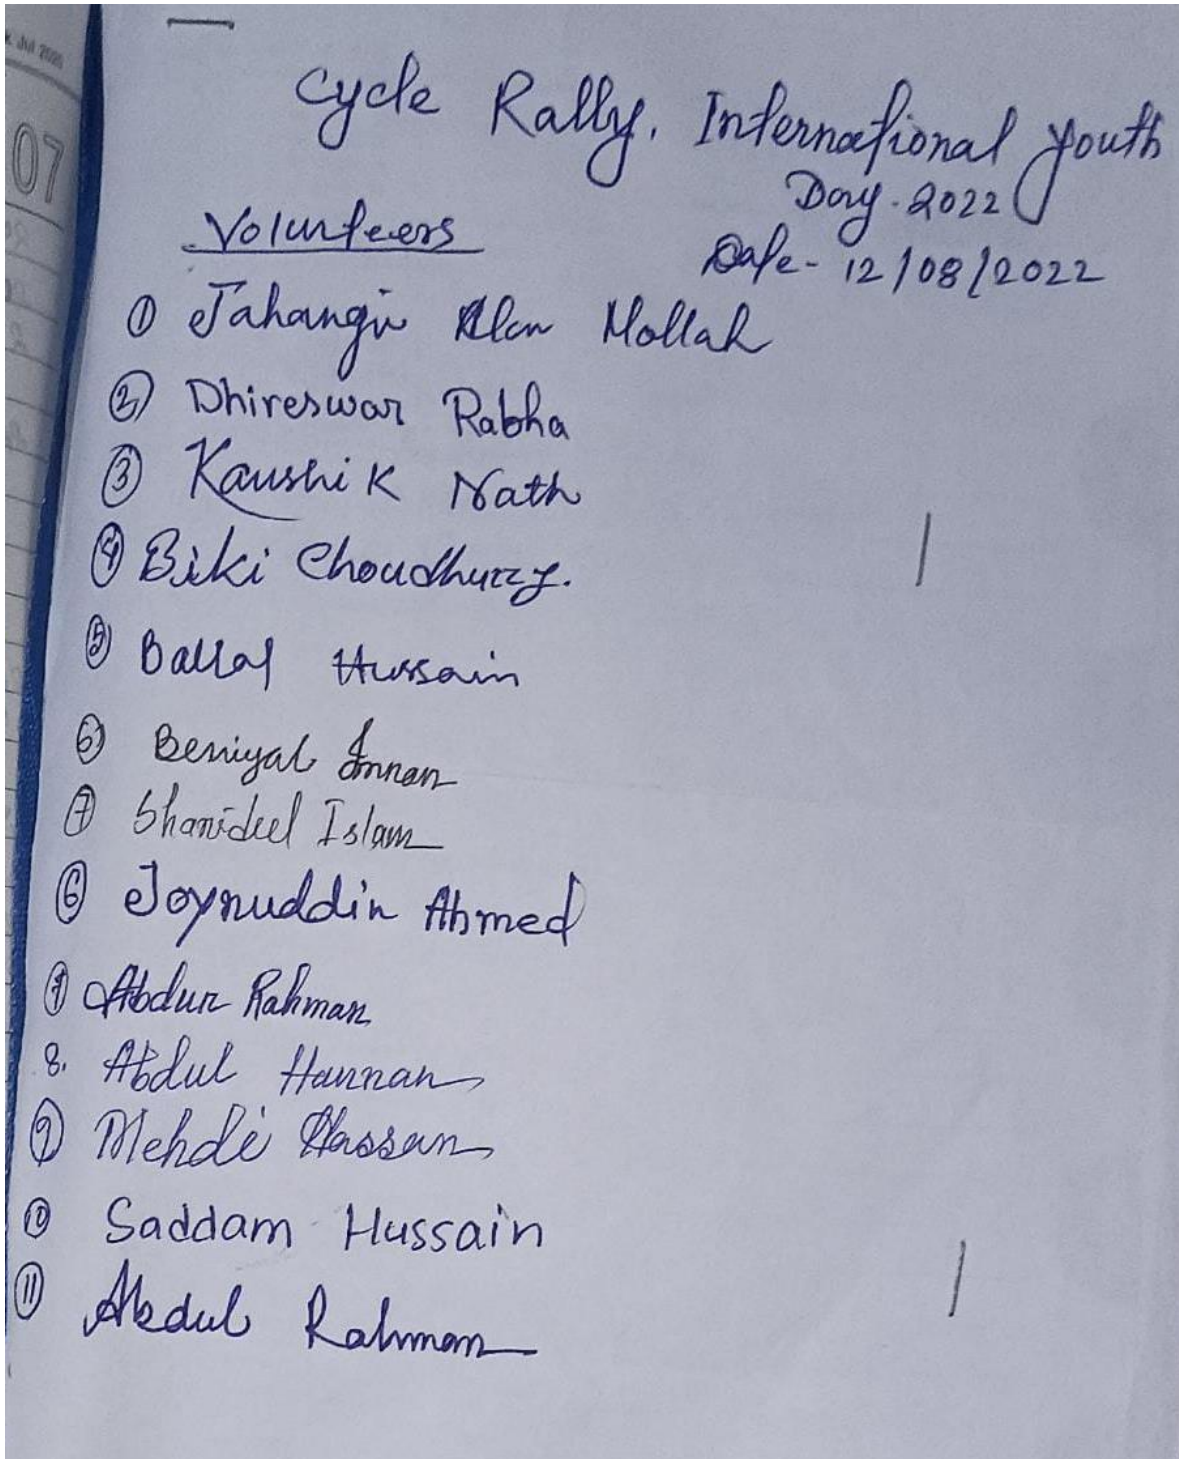 Jul 2020
07
Cycle Rally, International Youth
Day-2022
Date- 12/08/2022
Volunteers
① Jahangir Alam Mollah
② Dhireswar Rabha
③ Kaushik Nath
④ Biki Choudhury.
⑤ Ballal Hussain
⑥ Beniyal
⑦ Islam
⑥ Joynuddin Ahmed
⑦ Abdur Rahman
8. Abdul Hannan
⑨ Mehdi Hassan
⑩ Saddam Hussain
⑪ Abdul Rahman